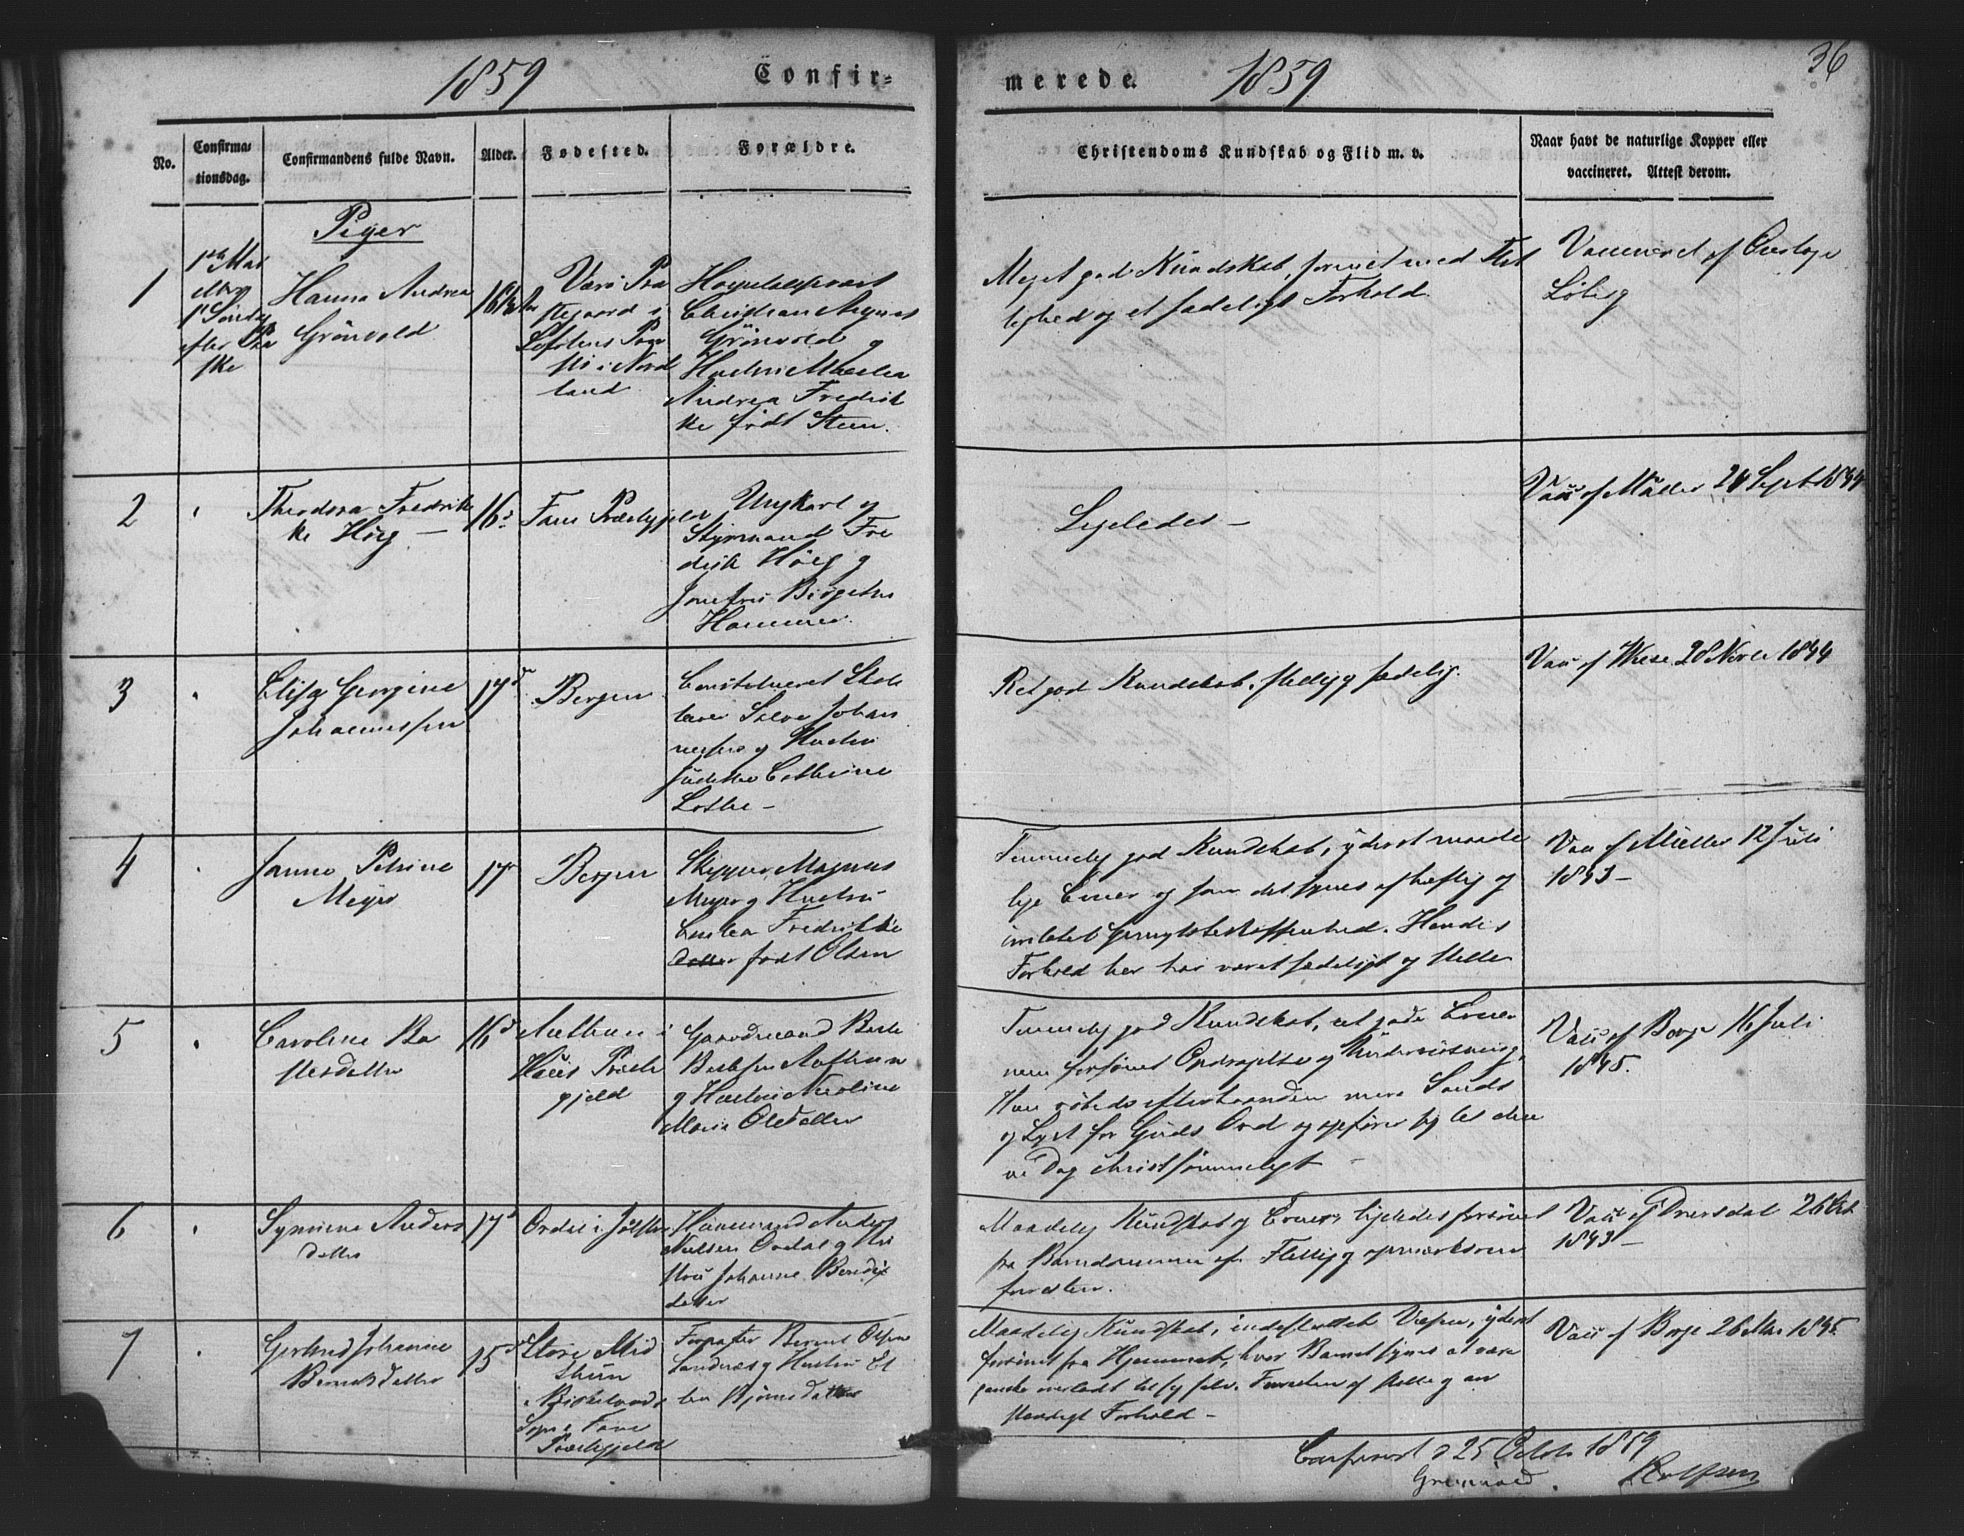 36
1859 Confir=
merede. 1859
No.
Confirma=
tionsdag.
Confirmandens fulde Navn.
Alder.
Fødested.
Forældre.
Christendoms Kundskab og Flid m. v.
Naar havt de naturlige Kopper eller
vaccineret. Attest derom.
Piger
1
1ste
1ste Søndag
efter Paa
ske
Hanna Andrea
Grönvold
16
Værö Præ
stegaard i
Lofotens Prov
sti i Nord
land
Hospitalspræst
Christian August
Grönvold og
Hustru
Andrea Fredrik
ke født Steen.
Meget god Kundskab, forenet med Flit
tighed og et sædeligt Forhold.
Vaccineret af Overlæge
Löberg
2
Theodora Fredrik
ke Höeg —
16
Fane Præstegjeld
Ungkarl og
Styrmand Fre
drik Höeg og
Birgithe
Hammer.
Ligeledes —
Vacc af Müller 24 Sept 1844
3
Elisa Georgine
Johannessen
17
Bergen
Constitueret Skole
lærer Johan
nessen og Hustru
Cathrine
Lothe —
Ret god Kundskab, flittig og sædelig.
Vacc af Wiese 28 Novbr 1844
4
Janna Petrine
Meyer
17
Bergen
Skipper Magnus
Meyer og Hustru
Fredrikke
født Olsen
Temmelig god Kundskab, yderst maade
lige Evner og som det synes af heftig og
Hendes
Forhold her har været sædeligt og stille
Vacc af Müller 12 Juli
1843 —
5
Caroline Ba
stesdatter
16
i
Hous Præste
gjeld
Gaardmand Baste
Bastesen
og Hustru Nicoline
Marie Olsdatter
Temmelig god Kundskab, ret gode Evner
men forsömt Opdragelse og Underviisning,
Hun efterhaanden mere Sands
og Lyst for Guds Ord og opförer sig til den
ne Dag christsömmeligt —
Vacc af Borge 16 Juli
1845.
6
Synneve Anders
datter
17
Ordal i Jölster
Huusmand Anders
Nielsen Ordal og Hu
stru Johanne Bendix
datter
Maadelig Kundskab og Evner, ligeledes forsömt
fra Barndommen af. Flittig og opmærksom
forresten.
Vacc af Dversdal 26 Oct
1843 —
7
Gertrud Johanne
Berntsdatter
15
Store Mid
thun
i Birkelands
Sogn i Fane
Præstegjeld
Forpagter Bernt Olsen
Sandnæs og Hustru El
len Björnsdatter
Maadelig Kundskab, indesluttet Væsen, yderst
forsömt fra Hjemmet, hvor Barnet synes at være
ganske overladt til sig selv. Forresten af stille og an
stændigt Forhold —
Vacc af Borge 26 Mai 1845
Confereret d 25 Octob 1859
Grönvold.